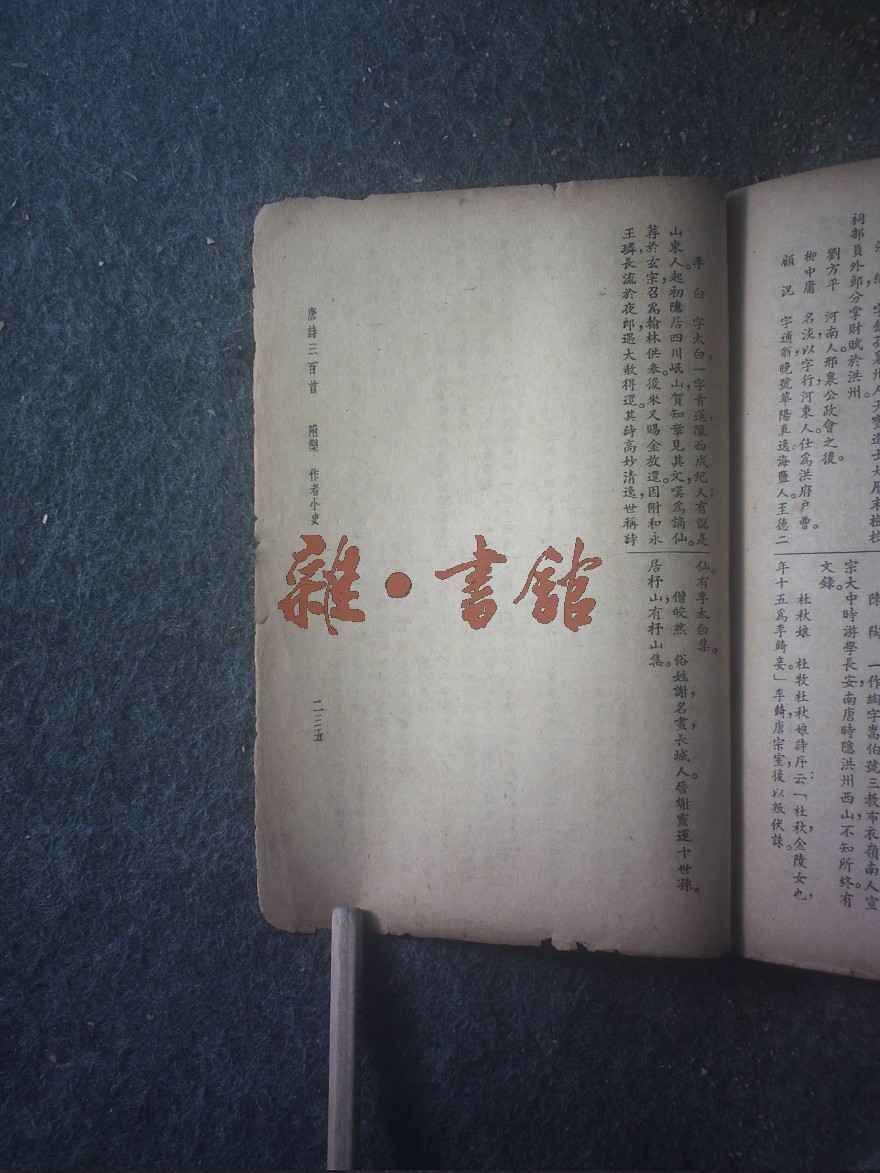 祠部員外郎分掌財賦於洪州。
劉方平　河南人，邢襄公政會之後。
柳中庸　名淡，以字行，河東人，仕爲洪府户曹。
顧　況　字逋翁，晚號華陽真逸。海鹽人。至德二
陳　陶　一作綯，字嵩伯，號三教布衣，嶺南人。宣
宗大中時游學長安，南唐時隱洪州西山，不知所終。有
文錄。
杜秋娘　杜牧杜秋娘詩序云：「杜秋，金陵女也，
年十五，爲李錡妾。」李錡，唐宗室，後以叛伏誅。
李　白　字太白，一字青蓮，隴西成紀人；有說是
山東人。起初隱居四川岷山，賀知章見其文，嘆爲謫仙。
荐於玄宗，召爲翰林供奉。後來又賜金放還。因附和永
王璘，長流於夜郎，遇大赦得還。其詩高妙清逸，世稱詩
仙。有李太白集。
僧皎然　俗姓謝，名晝，長城人。晉謝靈運十世孫。
居杼山，有杼山集。
唐詩三百首　附彔　作者小史
二三五
雜·書館